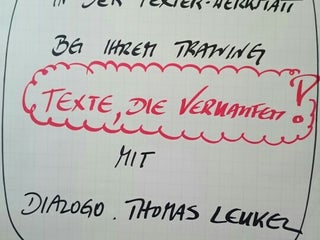 IN DER TEXTER-WERKSTATT
BEI IHREM TRAINING
TEXTE, DIE VERKAUFEN!
MIT
DIALOGO. THOMAS LENKEL